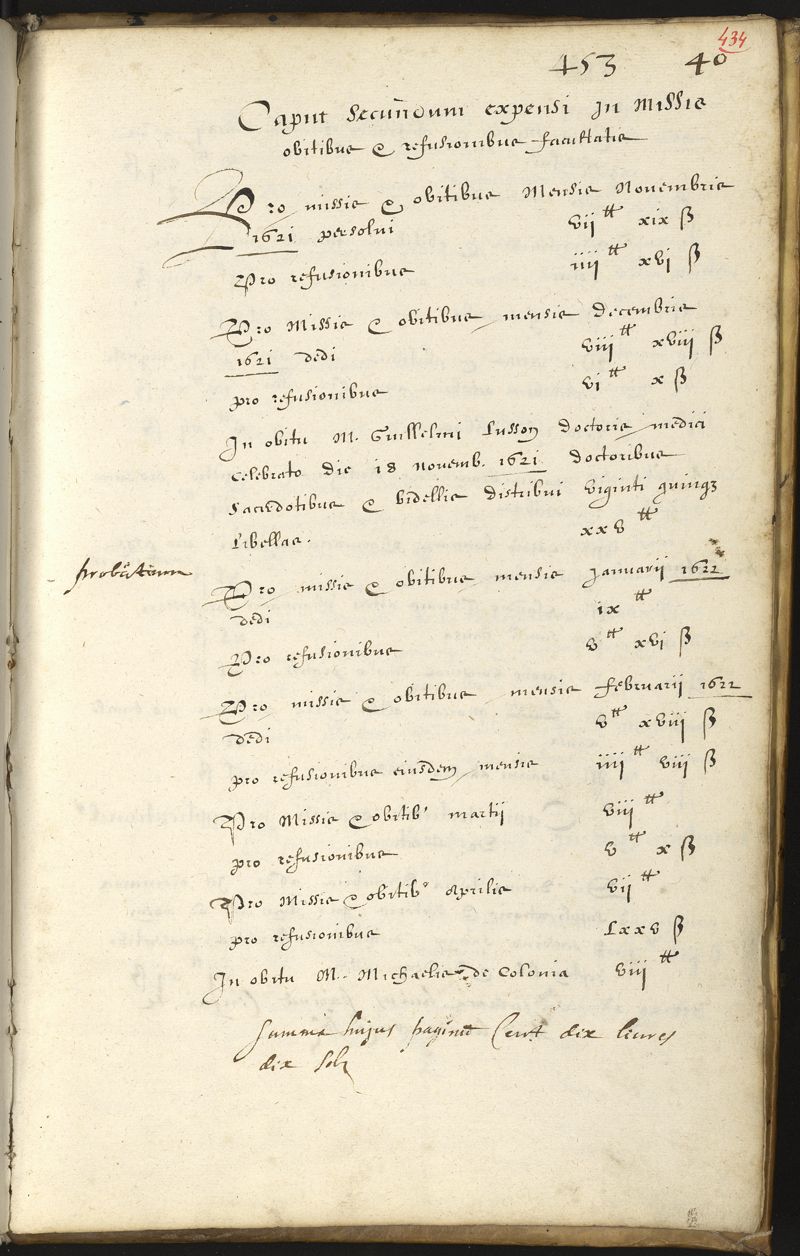 434
453 40
Caput Secundum expensi In Missis
obitibus & refusionibus facultatis
Pro missis & obitibus Mensis Novembris
1621 persolvi vii tt xix ß
Pro refusionibus iiij tt xvj ß
Pro Missis & obitibus mensis decembris
1621 dedi viij tt xviij ß
pro refusionibus vj tt x ß
In obitu M. Guillelmi Lusson doctoris medici
celebrato die 18 novemb. 1621 doctoribus
sacerdotibus & bidellis distribui viginti quinqz
libellas. xxv tt
probatum
Pro missis & obitibus mensis Januarij 1622
dedi ix tt
Pro refusionibus v tt xvj ß
Pro missis & obitibus mensis februarij 1622
dedi v tt xviij ß
pro refusionibus eiusdem mensis iiij tt viij ß
Pro Missis & obitib' martij viij tt
pro refusionibus v tt x ß
Pro Missis & obitib' Aprilis vij tt
pro refusionibus Lxxv ß
In obitu M. Michaelis de Colonia viij tt
Summa hujus paginæ Cent dix livres
dix solz